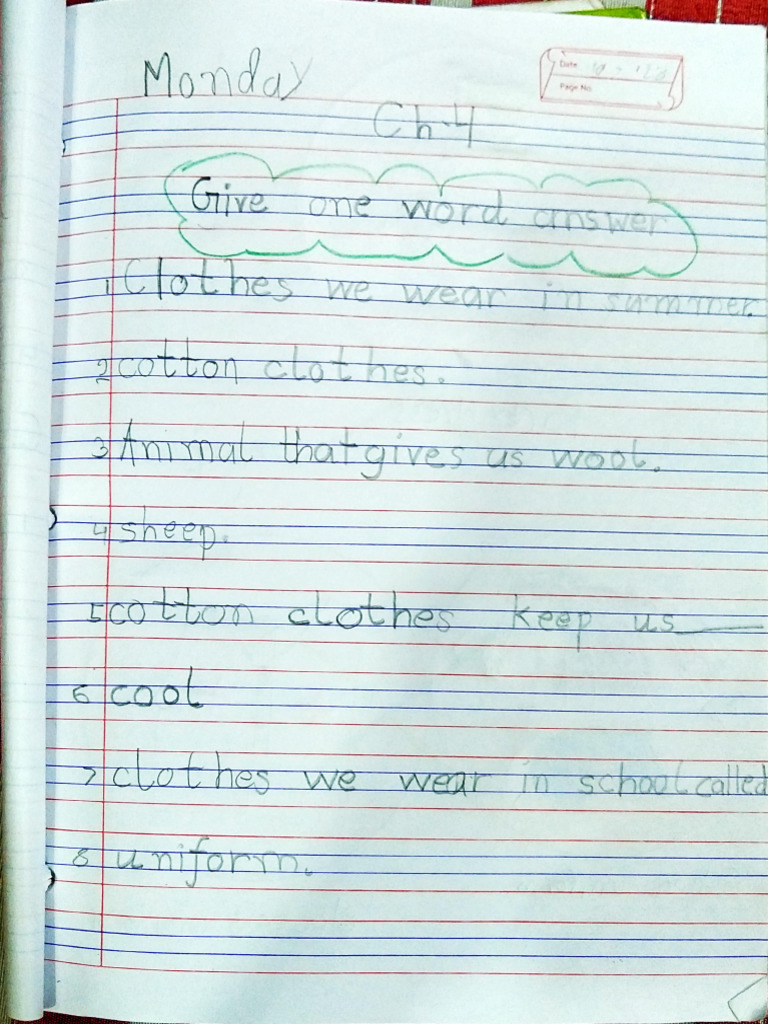 Monday
Date
Page No.
Ch-4
Give one word answer
1 Clothes we wear in summer.
2 cotton clothes.
3 Animal that gives us wool.
4 sheep.
5 cotton clothes keep us
6 cool
7 clothes we wear in school called
8 uniform.